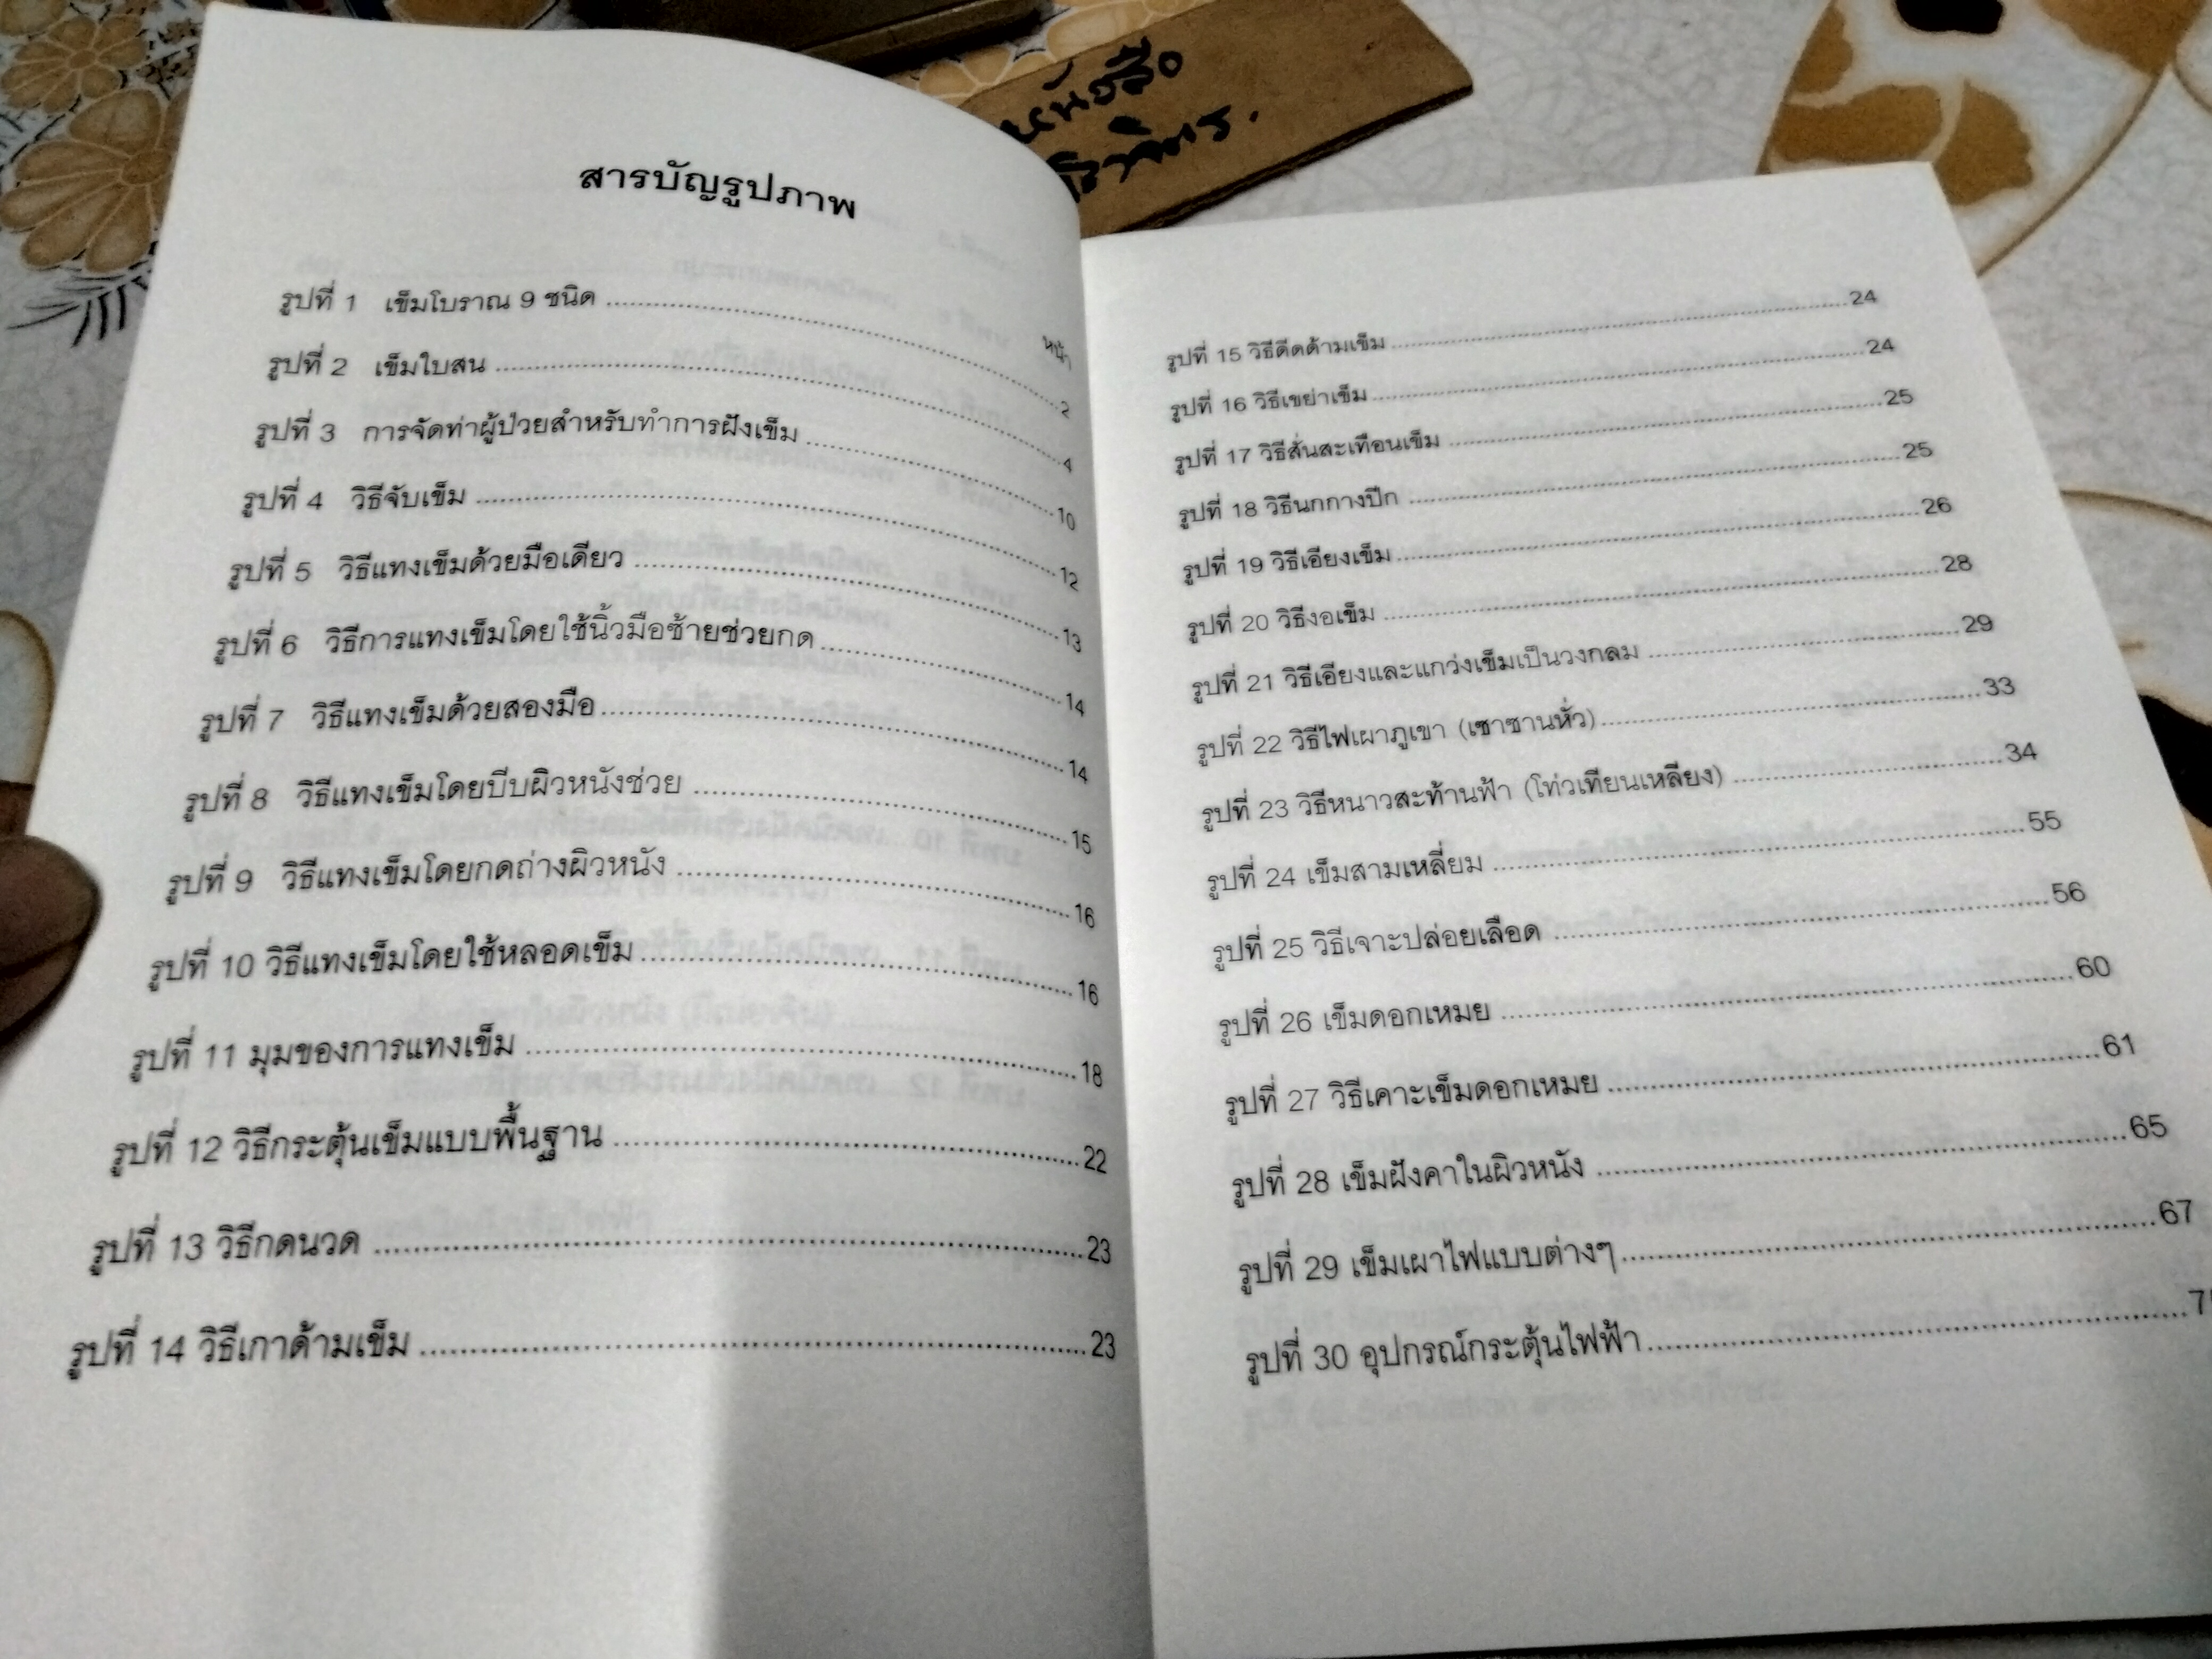 หนังสือ
สารบัญรูปภาพ
หน้า
รูปที่ 1 เข็มโบราณ 9 ชนิด ........ 2
รูปที่ 2 เข็มใบสน ........ 4
รูปที่ 3 การจัดท่าผู้ป่วยสำหรับทำการฝังเข็ม ........ 10
รูปที่ 4 วิธีจับเข็ม ........ 12
รูปที่ 5 วิธีแทงเข็มด้วยมือเดียว ........ 13
รูปที่ 6 วิธีการแทงเข็มโดยใช้นิ้วมือซ้ายช่วยกด ........ 14
รูปที่ 7 วิธีแทงเข็มด้วยสองมือ ........ 14
รูปที่ 8 วิธีแทงเข็มโดยบีบผิวหนังช่วย ........ 15
รูปที่ 9 วิธีแทงเข็มโดยกดถ่างผิวหนัง ........ 16
รูปที่ 10 วิธีแทงเข็มโดยใช้หลอดเข็ม ........ 16
รูปที่ 11 มุมของการแทงเข็ม ........ 18
รูปที่ 12 วิธีกระตุ้นเข็มแบบพื้นฐาน ........ 22
รูปที่ 13 วิธีกดนวด ........ 23
รูปที่ 14 วิธีเกาด้ามเข็ม ........ 23
รูปที่ 15 วิธีดีดด้ามเข็ม ........ 24
รูปที่ 16 วิธีเขย่าเข็ม ........ 24
รูปที่ 17 วิธีสั่นสะเทือนเข็ม ........ 25
รูปที่ 18 วิธีนกกางปีก ........ 25
รูปที่ 19 วิธีเอียงเข็ม ........ 26
รูปที่ 20 วิธีงอเข็ม ........ 28
รูปที่ 21 วิธีเอียงและแกว่งเข็มเป็นวงกลม ........ 29
รูปที่ 22 วิธีไฟเผาภูเขา (เซาซานหั่ว) ........ 33
รูปที่ 23 วิธีหนาวสะท้านฟ้า (โท่วเทียนเหลียง) ........ 34
รูปที่ 24 เข็มสามเหลี่ยม ........ 55
รูปที่ 25 วิธีเจาะปล่อยเลือด ........ 56
รูปที่ 26 เข็มดอกเหมย ........ 60
รูปที่ 27 วิธีเคาะเข็มดอกเหมย ........ 61
รูปที่ 28 เข็มฝังคาในผิวหนัง ........ 65
รูปที่ 29 เข็มเผาไฟแบบต่างๆ ........ 67
รูปที่ 30 อุปกรณ์กระตุ้นไฟฟ้า ........